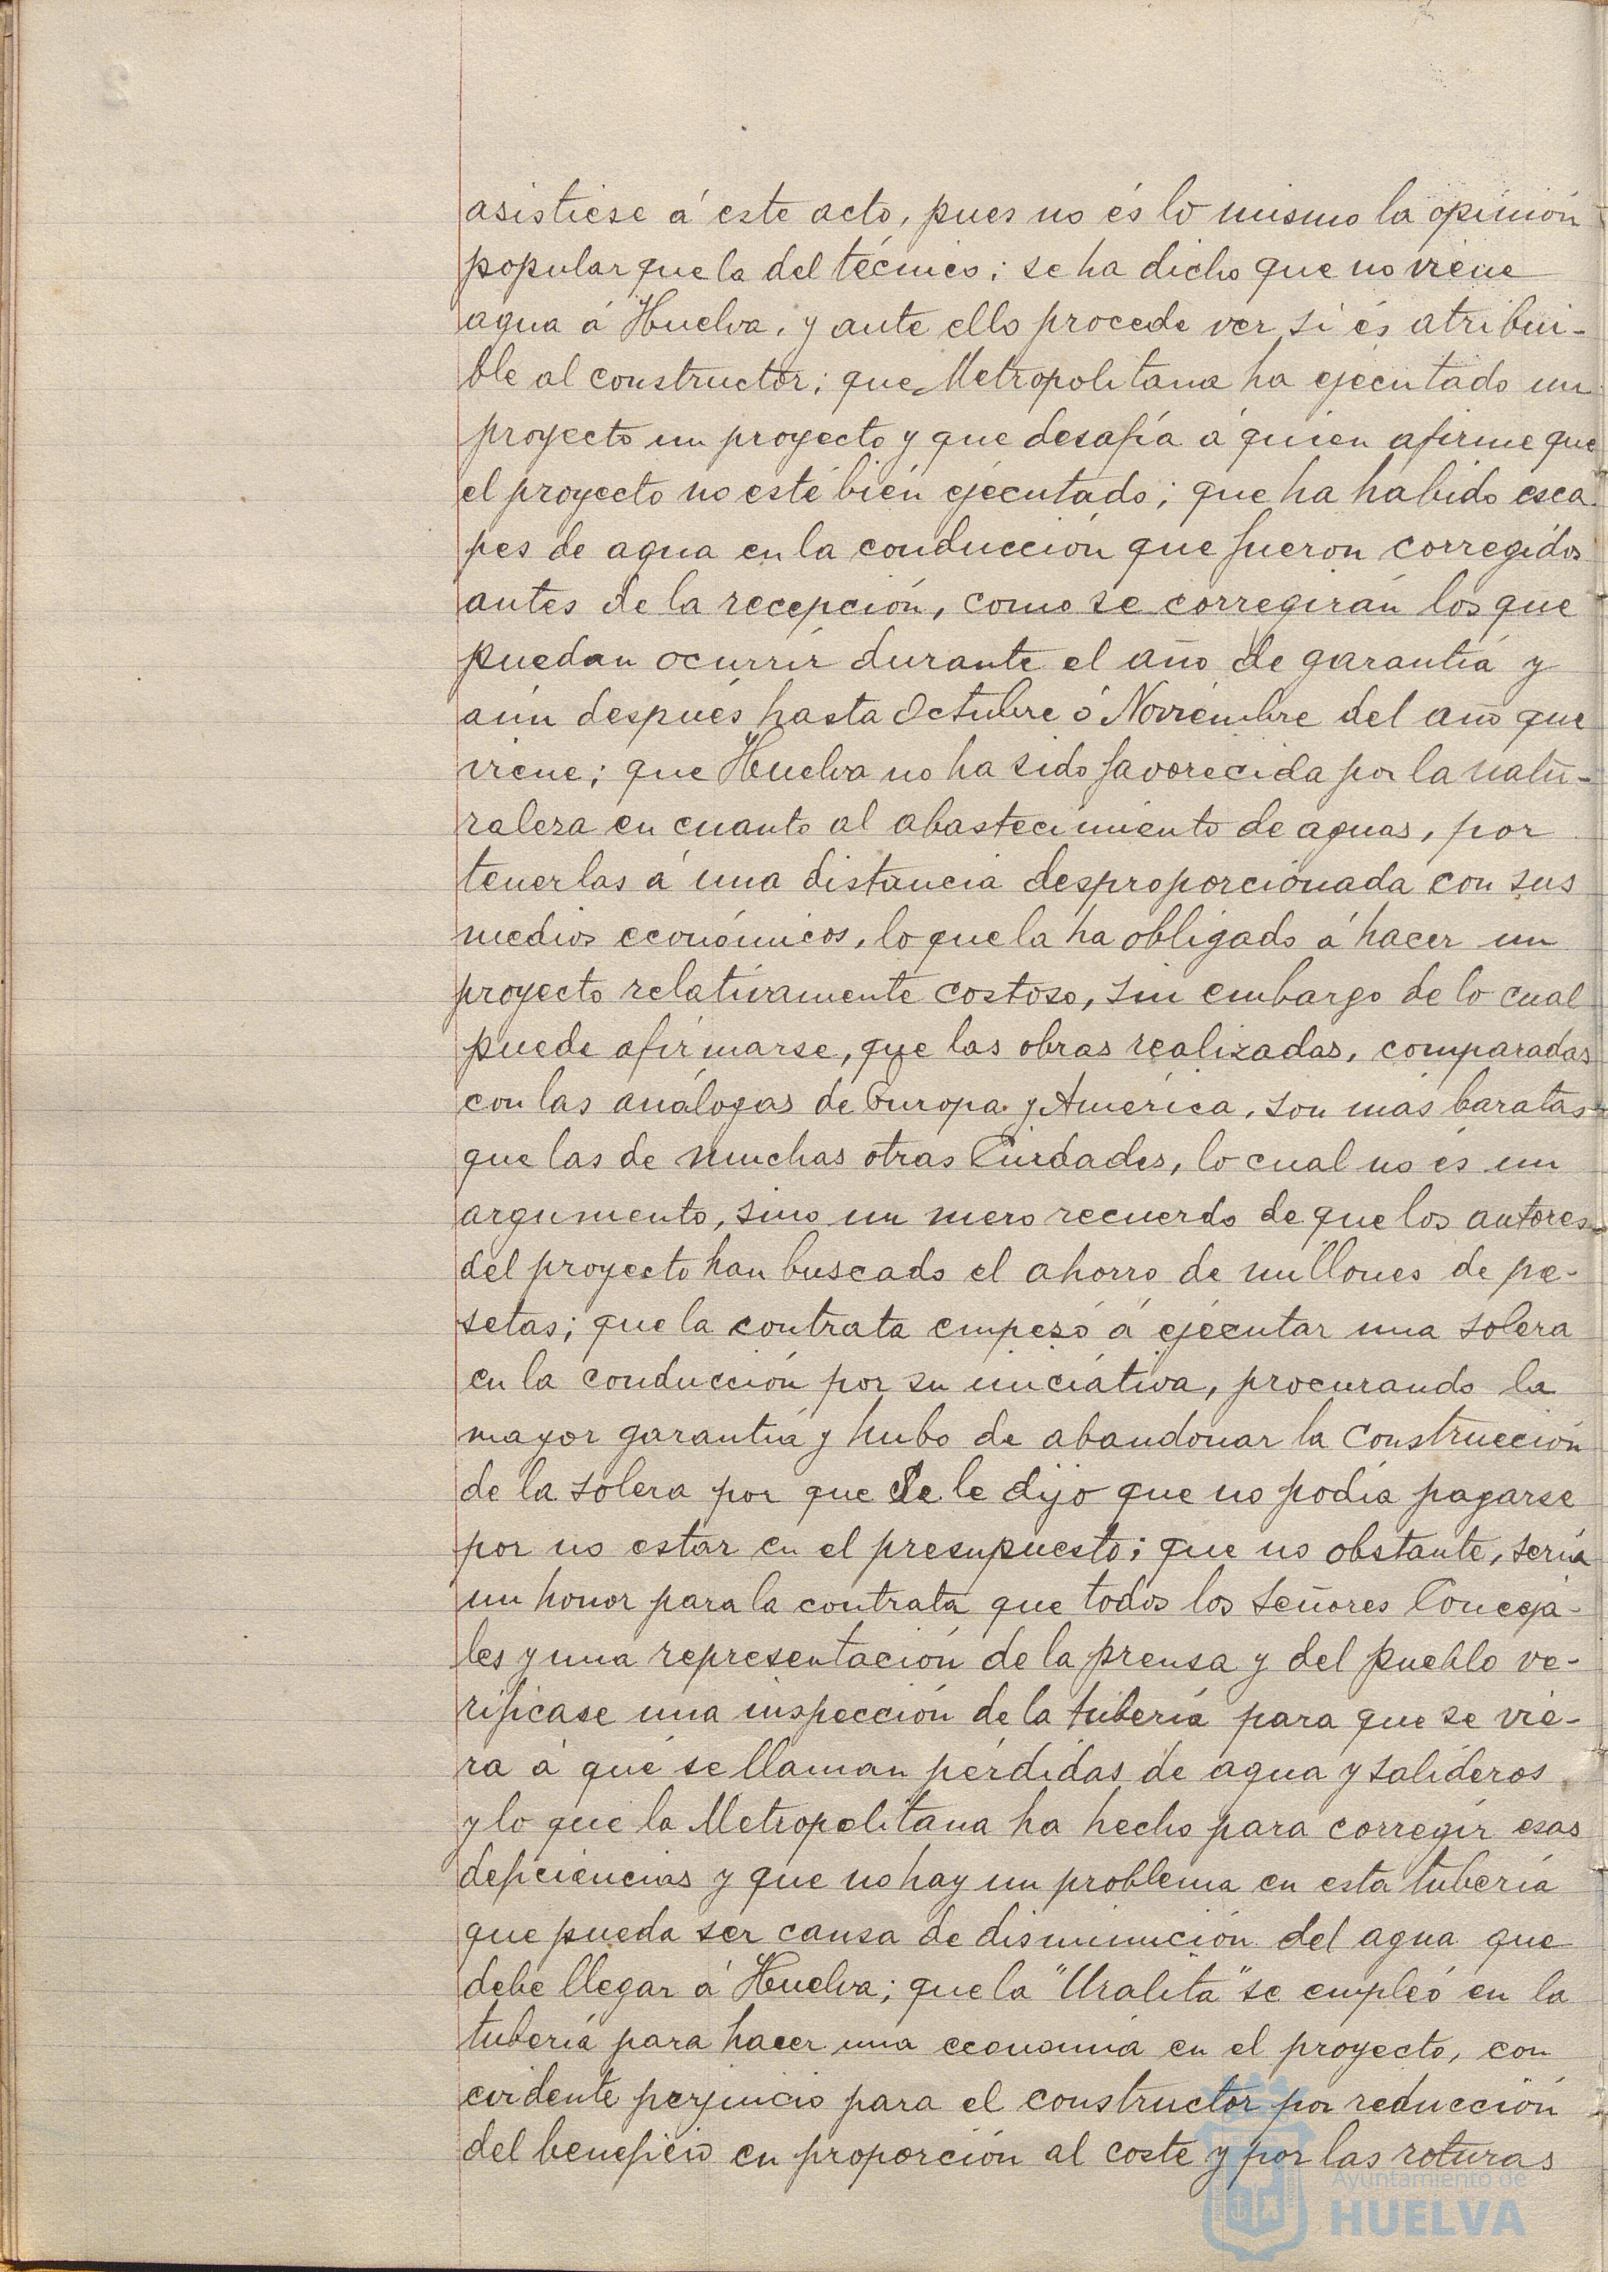 asistiese á este acto, pues no és lo mismo la opinión
popular que la del técnico; se ha dicho que no viene
agua á Huelva, y ante ello procede ver si és atribui-
ble al constructor; que Metropolitana ha ejecutado un
proyecto un proyecto y que desafía á quien afirme que
el proyecto no esté bién ejecutado; que ha habido esca-
pes de agua en la conducción que fueron corregidos
antes de la recepción, como se corregirán los que
puedan ocurrir durante el año de garantía y
aún después hasta Octubre ó Noviembre del año que
viene; que Huelva no ha sido favorecida por la natu-
raleza en cuanto al abastecimiento de aguas, por
tenerlas á una distancia desproporcionada con sus
medios económicos, lo que la ha obligado á hacer un
proyecto relativamente costoso, sin embargo de lo cual
puede afirmarse, que las obras realizadas, comparadas
con las análogas de Europa y América, son más baratas
que las de muchas otras Ciudades, lo cual no és un
argumento, sino un mero recuerdo de que los autores
del proyecto han buscado el ahorro de millones de pe-
setas; que la contrata empezó á ejecutar una solera
en la conducción por su iniciativa, procurando la
mayor garantía y hubo de abandonar la construcción
de la solera por que se le dijo que no podía pagarse
por no estar en el presupuesto; que no obstante, sería
un honor para la contrata que todos los señores Conceja-
les y una representación de la prensa y del pueblo ve-
rificase una inspección de la tubería para que se vie-
ra á qué se llaman pérdidas de agua y salideros
y lo que la Metropolitana ha hecho para corregir esas
deficiencias y que no hay un problema en esta tubería
que pueda ser causa de disminución del agua que
debe llegar á Huelva; que la "Uralita" se empleó en la
tubería para hacer una economía en el proyecto, con
evidente perjuicio para el constructor por reducción
del beneficio en proporción al coste y por las roturas
Ayuntamiento de
HUELVA